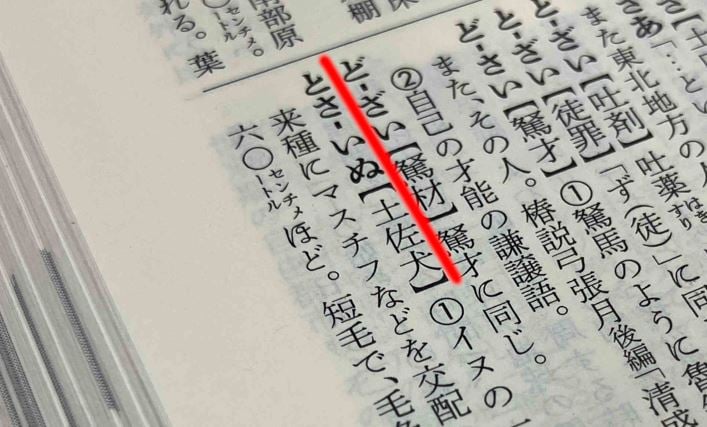 さあ「…とい
また東北地方の人
と‐ざい【吐剤】吐薬
と‐ざい【徒罪】「ず(徒)」に同
ど‐さい【駑才】①駑馬のように魯
また、その人。椿説弓張月後編「清盛
②自己の才能の謙譲語。
ど‐ざい【駑材】駑才に同じ。
とさ‐いぬ【土佐犬】①イヌの一
来種にマスチフなどを交配
六〇センチメートルほど。短毛で、毛
棚
南部原
〇センチメートル。
れる。葉